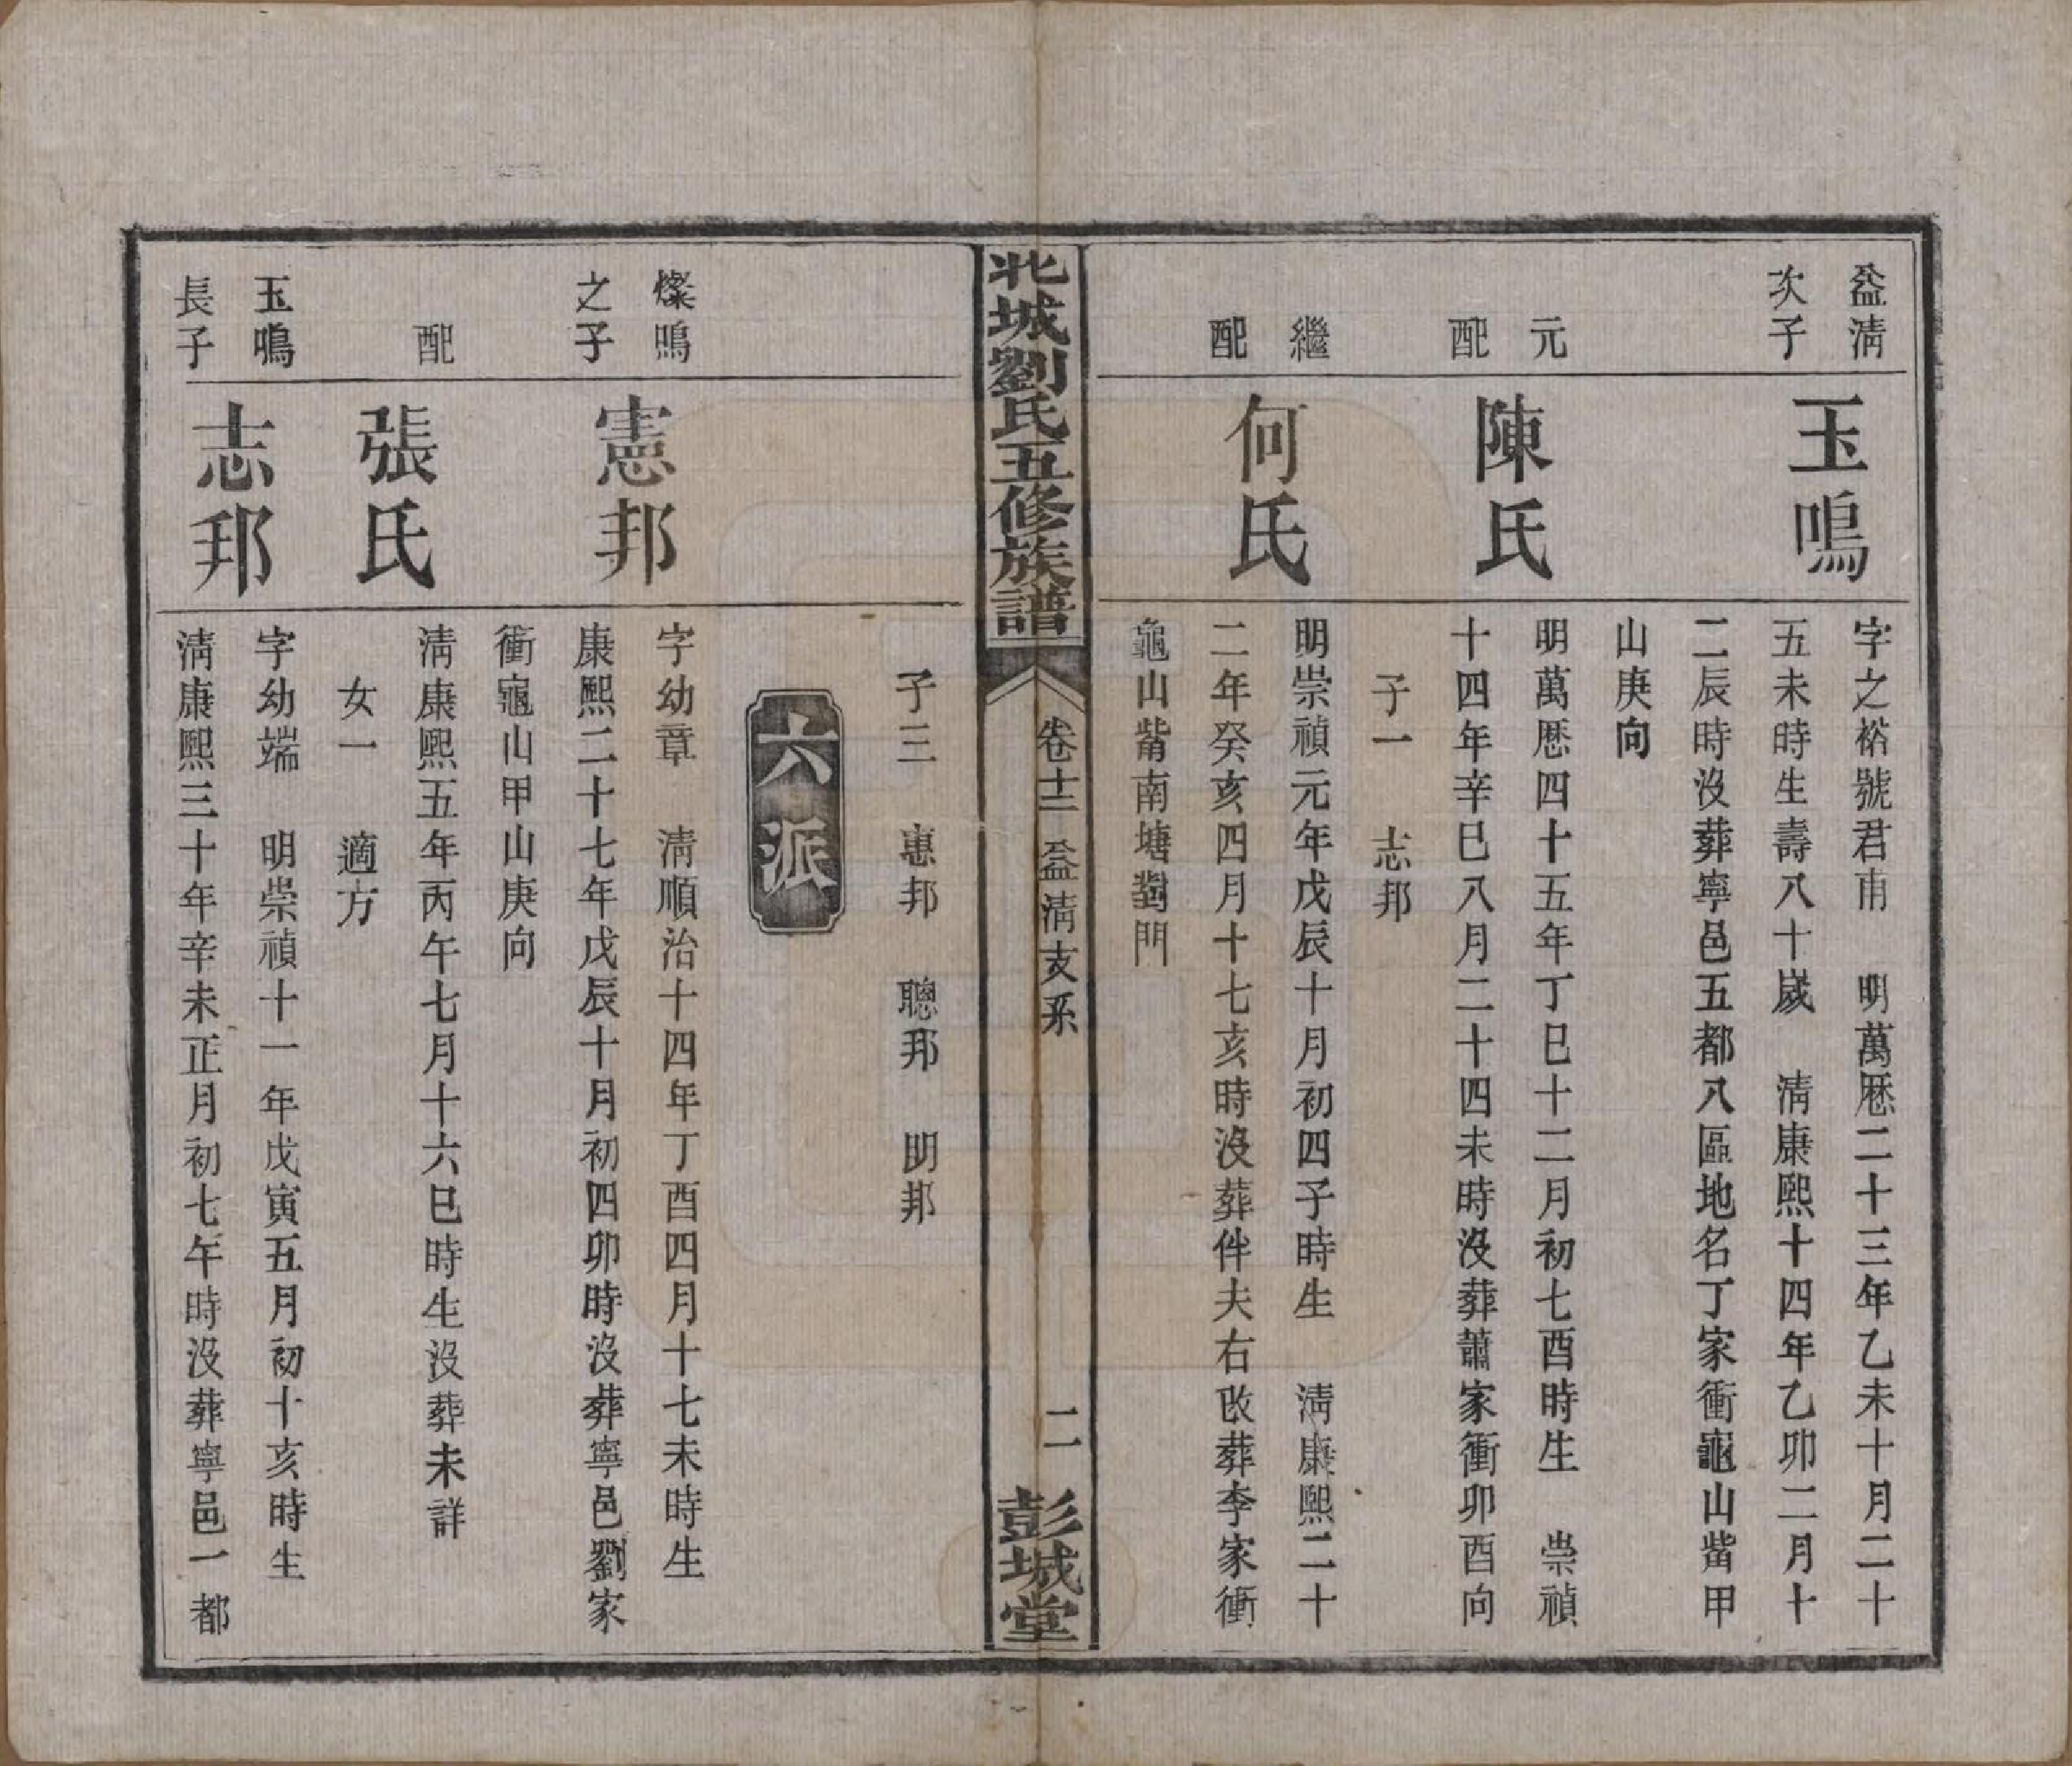 益淸
次子
玉鳴
字之裕號君甫　明萬厯二十三年乙未十月二十
五未時生壽八十歲　淸康熙十四年乙卯二月十
二辰時沒葬寧邑五都八區地名丁家衝龜山觜甲
山庚向
元
配
陳氏
明萬厯四十五年丁巳十二月初七酉時生　崇禎
十四年辛巳八月二十四未時沒葬蕭家衝卯酉向
子一　志邦
繼
配
何氏
明崇禎元年戊辰十月初四子時生　淸康熙二十
二年癸亥四月十七亥時沒葬伴夫右改葬李家衝
龜山觜南塘對門
北城劉氏五修族譜
卷十二 益淸支系
二
彭城堂
子三　惠邦　聰邦　明邦
六派
燦鳴
之子
憲邦
字幼章　淸順治十四年丁酉四月十七未時生
康熙二十七年戊辰十月初四卯時沒葬寧邑劉家
衝龜山甲山庚向
配
張氏
淸康熙五年丙午七月十六巳時生沒葬未詳
女一　適方
玉鳴
長子
志邦
字幼端　明崇禎十一年戊寅五月初十亥時生
淸康熙三十年辛未正月初七午時沒葬寧邑一都